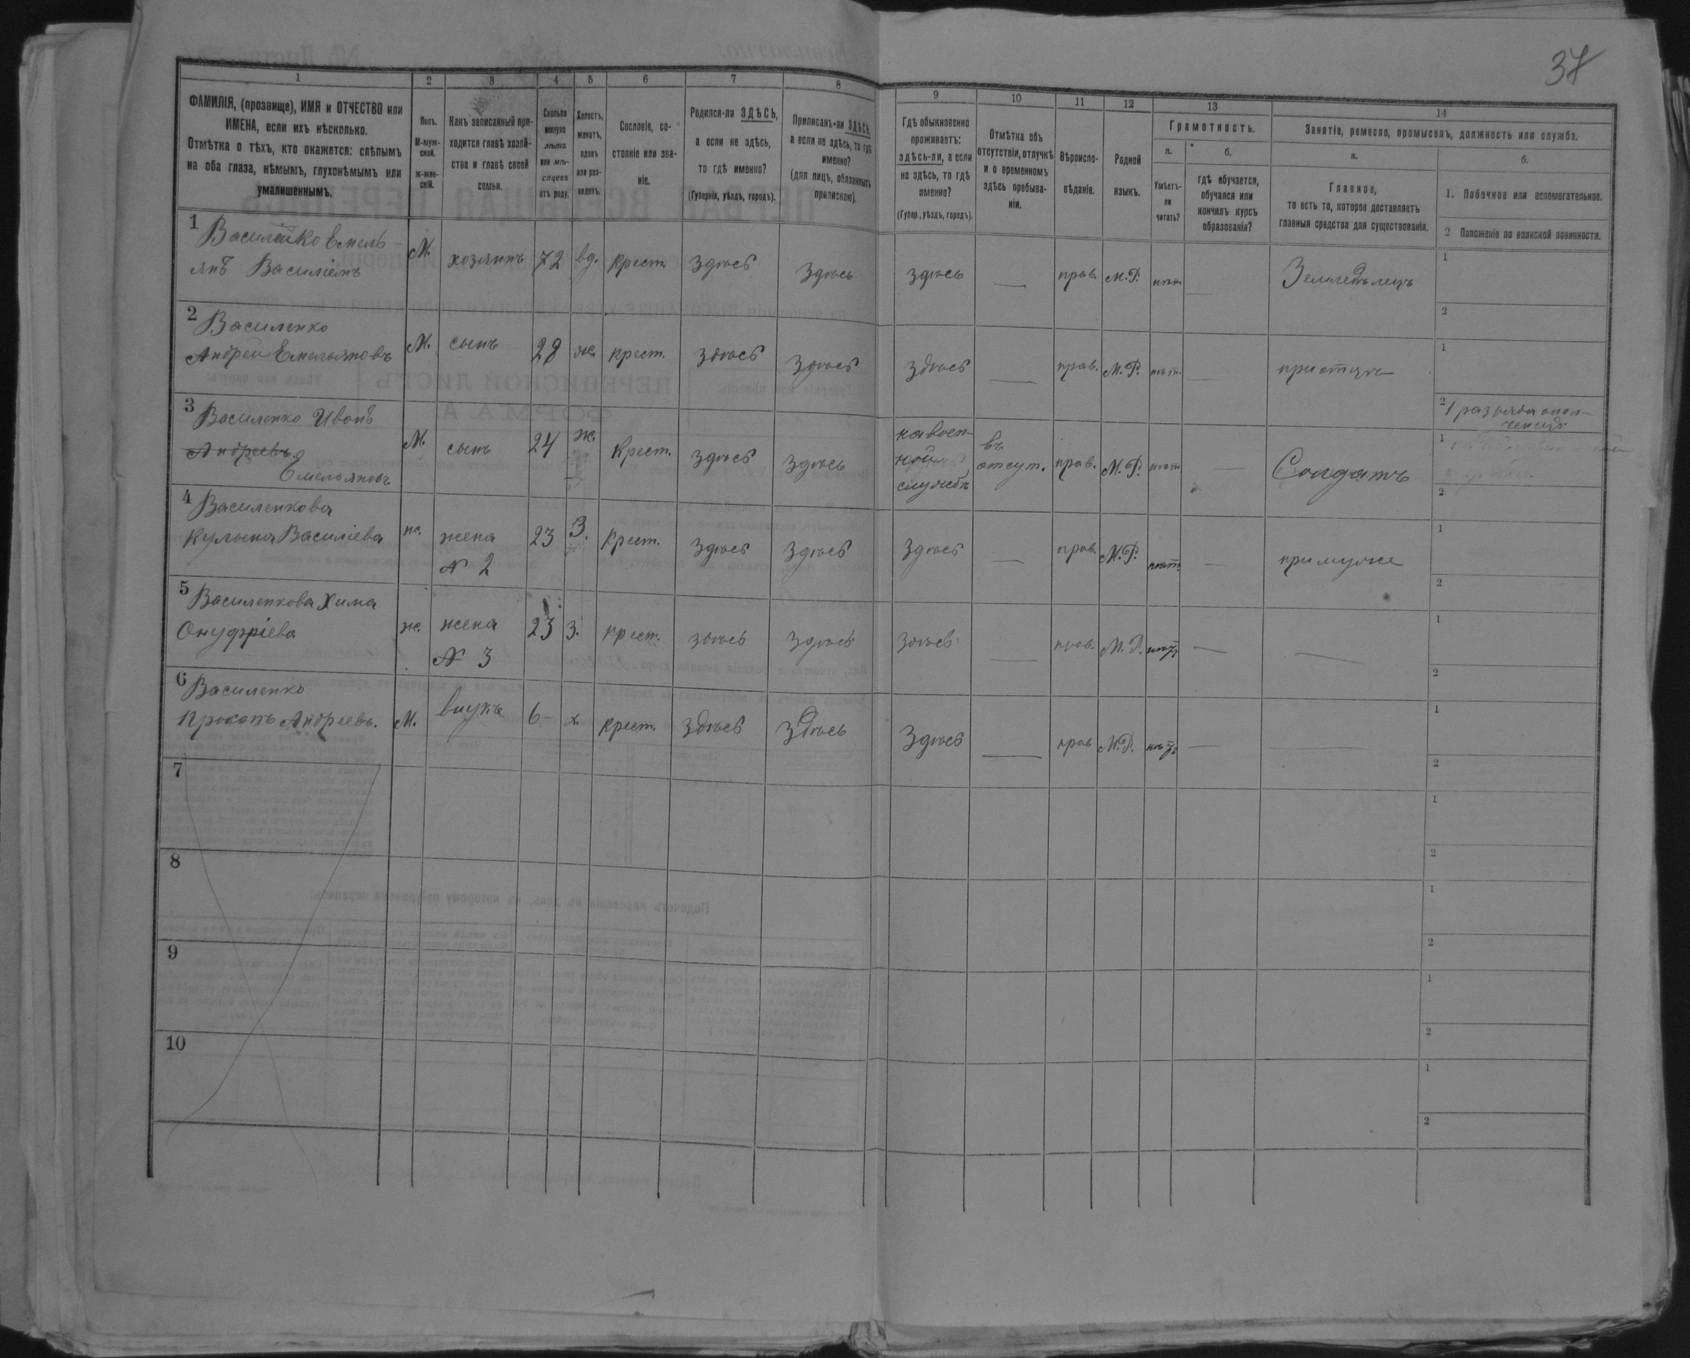 37
1 2 3 4 5 6 7 8 9 10 11 12 13 14
ФАМИЛІЯ, (прозвище), ИМЯ и ОТЧЕСТВО или
ИМЕНА, если ихъ нѣсколько.
Отмѣтка о тѣхъ, кто окажется: слѣпымъ
на оба глаза, нѣмымъ, глухонѣмымъ или
умалишеннымъ.
Полъ.
М-муж-
ской.
ж-жен-
скій.
Какъ записанный при-
ходится главѣ хозяй-
ства и главѣ своей
семьи.
Сколько
минуло
лѣтъ
или мѣ-
сяцевъ
отъ роду.
Холостъ,
женатъ,
вдовъ
или раз-
веденъ.
Сословіе, со-
стояніе или зва-
ніе.
Родился-ли ЗДѢСЬ,
а если не здѣсь,
то гдѣ именно?
(Губернія, уѣздъ, городъ).
Приписанъ-ли ЗДѢСЬ,
а если не здѣсь, то гдѣ
именно?
(для лицъ, обязанныхъ
припискою).
Гдѣ обыкновенно
проживаетъ:
здѣсь-ли, а если
не здѣсь, то гдѣ
именно?
(Губер., уѣздъ, городъ).
Отмѣтка объ
отсутствіи, отлучкѣ
и о временномъ
здѣсь пребыва-
ніи.
Вѣроиспо-
вѣданіе.
Родной
языкъ.
Грамотность.
а.
Умѣетъ-
ли
читать?
б.
гдѣ обучается,
обучался или
кончилъ курсъ
образованія?
Занятіе, ремесло, промыселъ, должность или служба.
а.
Главное,
то есть то, которое доставляетъ
главныя средства для существованія.
б.
1. Побочное или вспомогательное.
2 Положеніе по воинской повинности.
1 Василенко Емель-
янъ Василіевъ М. хозяинъ 72 вд. крест. здѣсь здѣсь здѣсь — прав. М.Р. нѣтъ — Земледѣлецъ 1
2
2 Василенко
Андрей Емельяновъ М. сынъ 28 ж. крест. здѣсь здѣсь здѣсь — прав. М.Р. нѣтъ — при отцѣ 1
2 1 разряда опол-
ченецъ
3 Василенко Иванъ
Андреевъ
Емельяновъ М. сынъ 24 ж. Крест. здѣсь здѣсь на воен-
ной
службѣ въ
отсут. прав. М.Р. нѣтъ — Солдатъ 1
2
4 Василенкова
Кулына Василіева ж. жена
№ 2 23 З. крест. здѣсь здѣсь здѣсь — прав. М.Р. нѣтъ — при мужѣ 1
2
5 Василенкова Хима
Онуфріева ж. жена
№ 3 23 з. крест. здѣсь здѣсь здѣсь — прав. М.Р. нѣтъ — — 1
2
6 Василенко
Прокопъ Андреевъ. М. внукъ 6 х. крест. здѣсь здѣсь здѣсь — прав М.Р. нѣтъ — 1
2
7 1
2
8 1
2
9 1
2
10 1
2